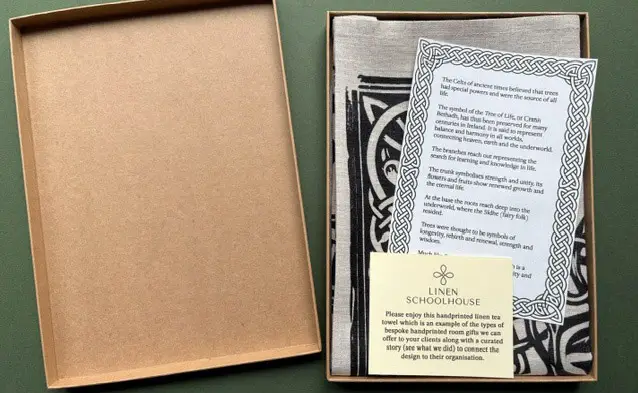 The Celts of ancient times believed that trees
had special powers and were the source of all
life.
The symbol of the Tree of Life, or Crann
Bethadh, has thus been preserved for many
centuries in Ireland. It is said to represent
balance and harmony in all worlds,
connecting heaven, earth and the underworld.
The branches reach out representing the
search for learning and knowledge in life.
The trunk symbolises strength and unity, its
flowers and fruits show renewed growth and
the eternal life.
At the base the roots reach deep into the
underworld, where the Sidhe (fairy folk)
resided.
Trees were thought to be symbols of
longevity, rebirth and renewal, strength and
wisdom.
Much
is a
and
LINEN
SCHOOLHOUSE
Please enjoy this handprinted linen tea
towel which is an example of the types of
bespoke handprinted room gifts we can
offer to your clients along with a curated
story (see what we did) to connect the
design to their organisation.